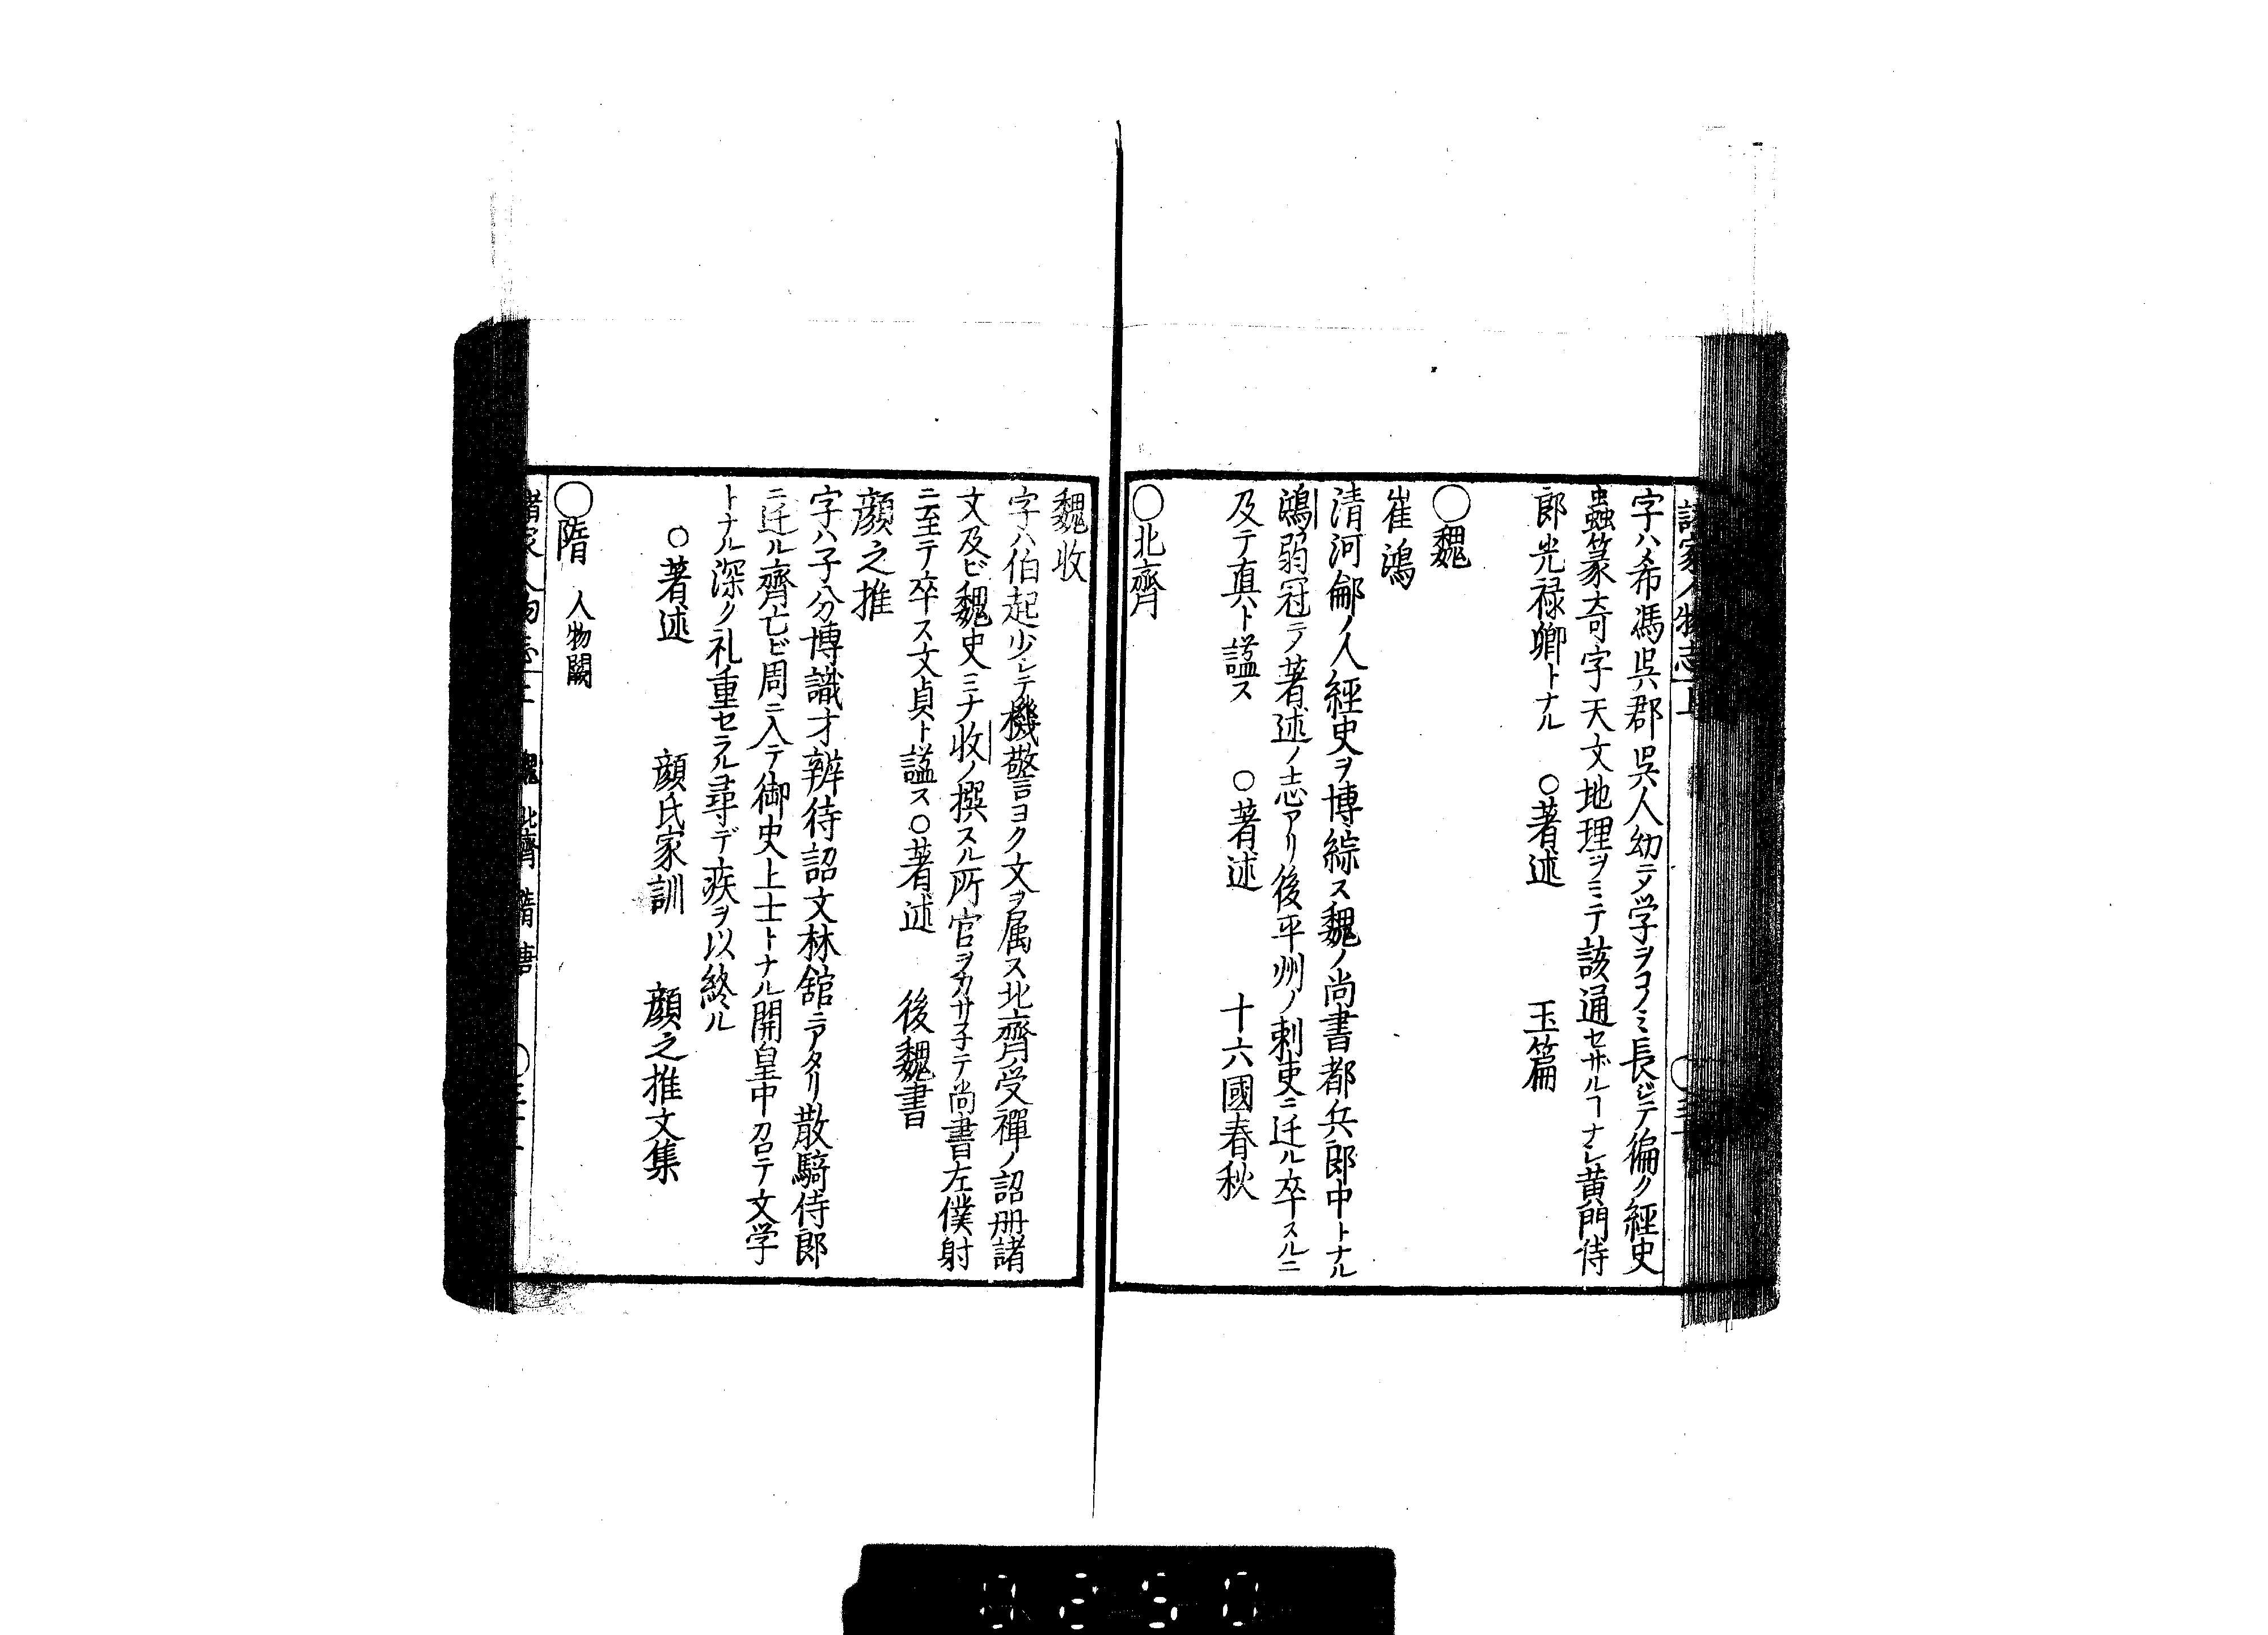 諸家人物志上
字ハ希馮呉郡呉人幼ニメ学ヲコノミ長ジテ徧ク經史
蟲篆奇字天文地理ヲミテ該通セザルヿナシ黄門侍
郎光禄卿トナル ○著述 玉篇
○魏
崔鴻
清河鄃ノ人經史ヲ博綜ス魏ノ尚書都兵郎中トナル
鴻弱冠ニノ著述ノ志アリ後平州ノ刺吏ニ迁ル卒スルニ
及テ真ト諡ス ○著述 十六國春秋
○北齊
魏收
字ハ伯起少シテ機警ヨク文ヲ属ス北齊ノ受禪ノ詔册諸
文及ビ魏史ミナ收ノ撰スル所官ヲカサ子テ尚書左僕射
ニ至テ卒ス文貞ト諡ス○著述 後魏書
顔之推
字ハ子分博識才辨待詔文林舘ニアタリ散騎侍郎
ニ迁ル齊亡ビ周ニ入テ御史上士トナル開皇中召テ文学
トナル深ク礼重セラル尋デ疾ヲ以終ル
○著述 顔氏家訓 顔之推文集
○隋 人物闕
魏 北齊 隋 唐
0250